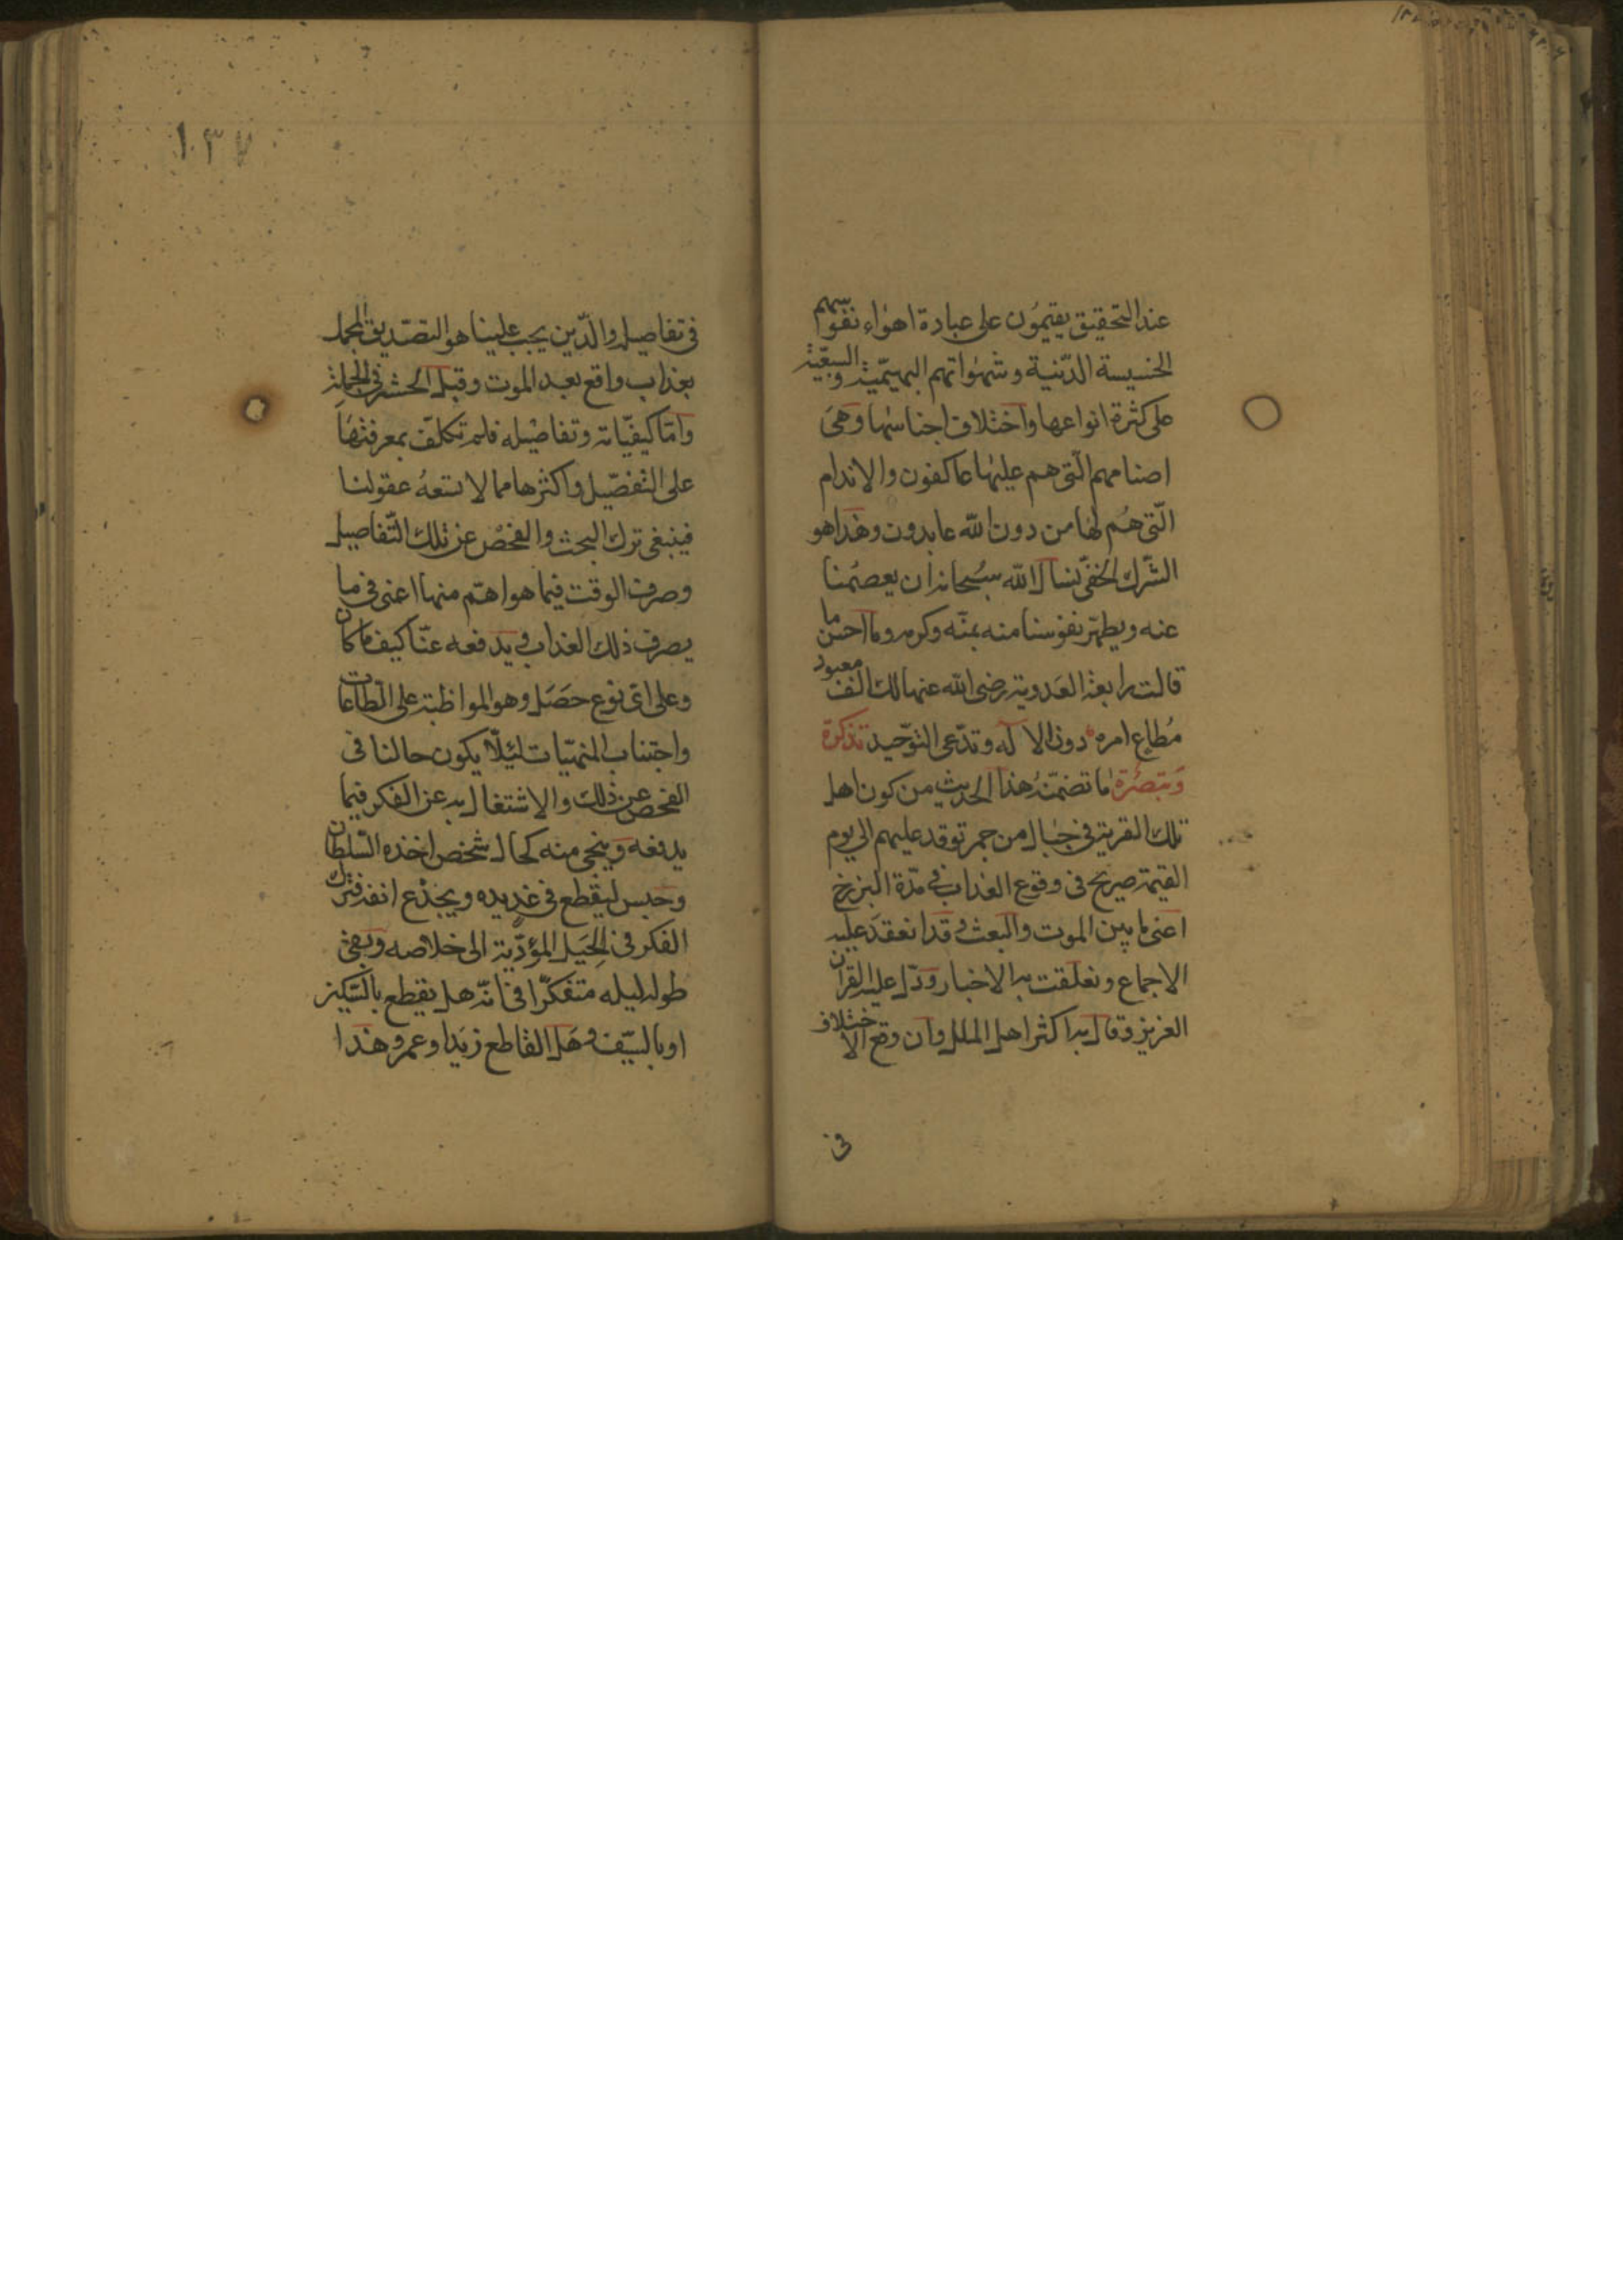 عند التحقيق يقيمُون على عبادة اهوٰاء نفوسهم
الخسيسة الدّنية وشهوٰاتهم البهيميّة والسبعّية
على كثرة انواعها واختلاف اجناسها وهىَ
اصنامهم الّتى هم عليهٰا عاكفون والاندام
الّتى هُم لهٰا من دون اللّه عابدون وهٰذا هو
الشّرك الخفّى نسال اللّه سبُحانه ان يعصمُنا
عنه ويطهّر نفوسنا منه بمنّه وكرمه وما احسن ما
قالت رابعة العَدوية رضى اللّه عنها لك الف معبود
مُطاع امره دون الاله وتدّعى التوّحيد تذكرة
وَتبصُرة مٰا تضمّنهُ هذا الحديث من كون اهل
تلك القرية فى جبٰال من جمر توقد عليهم الى يوم
القيٰمة صريح فى وقوع العذاب فى مدّة البرزخ
اعنى ما بين الموت والبعث وقد انعقدَ عليه
الاجماع ونعلقت به الاخبار ودَلّ عليه القرآن
العزيز وقال به اكثر اهل الملل وان وقع الاختلاف
فى
١٣٧
فى تفاصيله والّذين يجب علينا هو التصّديق المجمل
بعذاب واقع بعد الموت وقبل الحشر فى الجملة
وامّا كيفيّاته وتفاصيْله فلم تكلّف بمعرفتهٰا
على التفصّيل واكثرها مما لا تسَعهُ عقولنا
فينبغى ترك البحث والفحْص عن تلك التّفاصيل
وصرف الوقت فيما هو اهّم منها اعنى فى ما
يصرف ذلك العذاب ويدفعه عنّا كيف ما كان
وعلى اىّ نوع حصَل وهو المواظبة على الطّاعات
واجتناب المنهيّات لئيلّا يكون حالنا فى
الفحص عن ذٰلك والاشتغال به عن الفكر فيما
يدفعه وينجى منه كحال شخص اخذه السّلطان
وحَبس ليقطع فى غد يده ويجدْع انفه فترك
الفكر فى الحِيَل المؤدّية الى خلاصه وبقى
طول ليله متفكرّا فى انّه هل يقطع بالسّكين
او بالسّيف وهَل القاطع زيَد او عمرو هٰذا